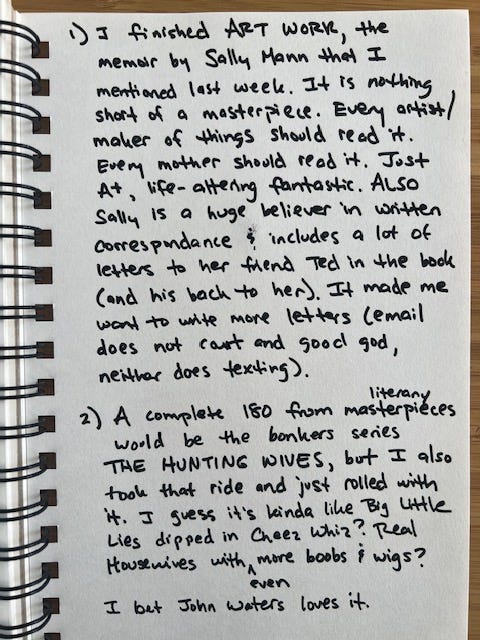 1) I finished ART WORK, the
memoir by Sally Mann that I
mentioned last week. It is nothing
short of a masterpiece. Every artist/
maker of things should read it.
Every mother should read it. Just
A+, life-altering fantastic. ALSO
Sally is a huge believer in written
correspondance & includes a lot of
letters to her friend Ted in the book
(and his back to her). It made me
want to write more letters (email
does not count and good god,
neither does texting).
2) A complete 180 from literary masterpieces
would be the bonkers series
THE HUNTING WIVES, but I also
took that ride and just rolled with
it. I guess it's kinda like Big Little
Lies dipped in Cheez Whiz? Real
Housewives with even more boobs & wigs?
I bet John Waters loves it.